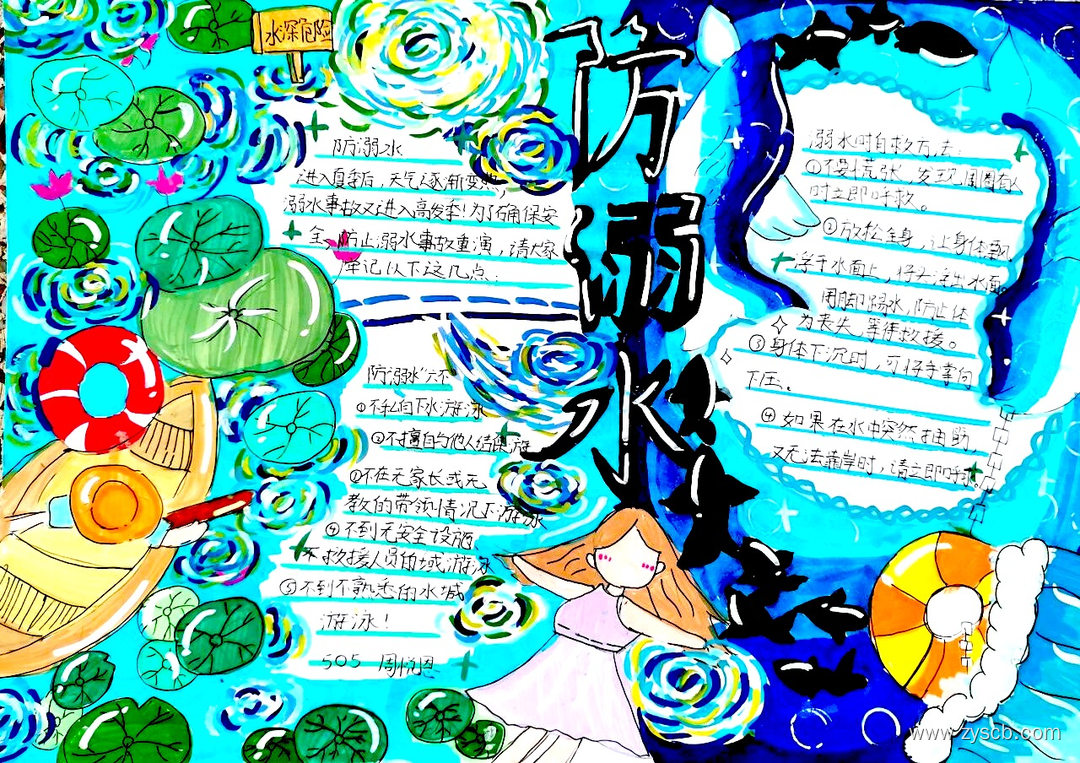 水深危险
防溺水
防溺水
进入夏季后，天气逐渐变热
溺水事故又进入高发季！为了确保安
全，防止溺水事故重演，请大家
牢记以下这几点：
防溺水“六不
①不私自下水游泳
②不擅自与他人结伴游
③不在无家长或无
教的带领情况下游泳
④不到无安全设施、
不救援人员的域游泳
⑤不到不熟悉的水域
游泳！
505 周悦恩
溺水时自救方法：
①不要慌张，发现周围有人
时立即呼救。
②放松全身，让身体飘
浮于水面上，将头浮出水面
用脚踢水，防止体
力丧失，等待救援。
③身体下沉时，可将手掌向
下压。
④如果在水中突然抽筋
又无法靠岸时，请立即呼救
www.zyscb.com